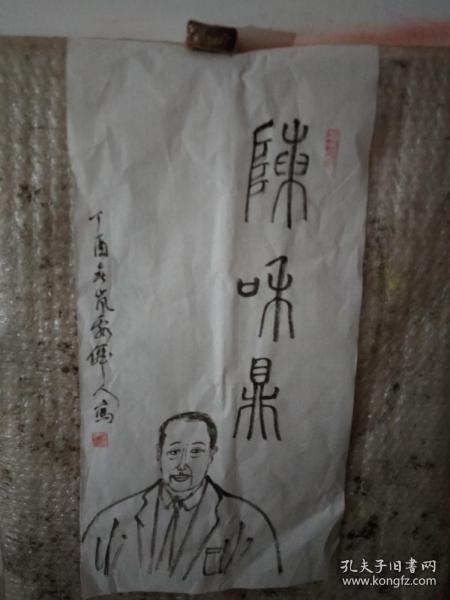 陳味鼎
丁酉冬嵐安偉人寫
孔夫子旧书网
www.kongfz.com